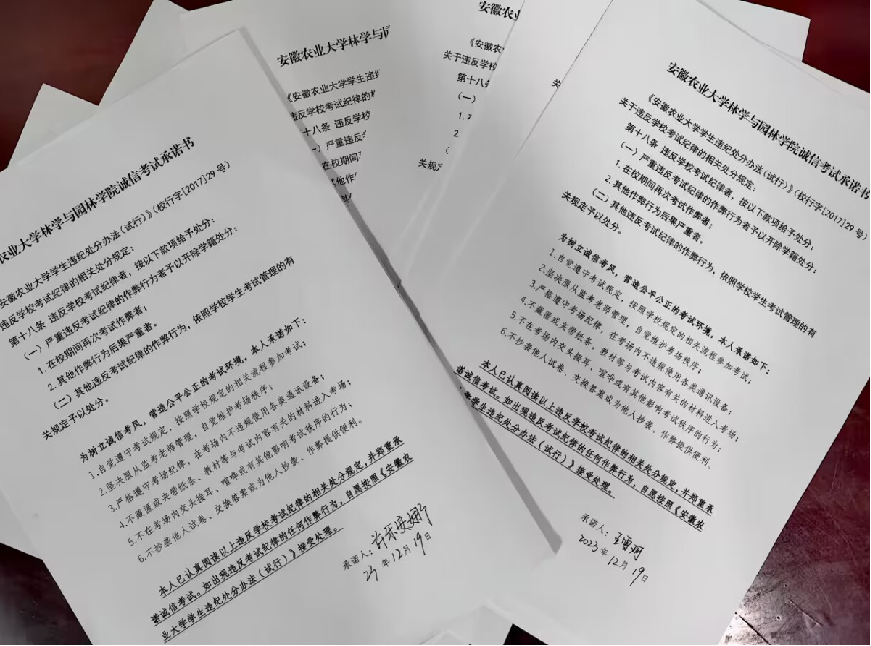 农业大学林学与园林学院诚信考试承诺书
安徽农业大学学生违纪处分办法（试行）》（校行字〔2017〕29号）
违反学校考试纪律的相关处分规定：
第十八条 违反学校考试纪律者，按以下款项给予处分：
（一）严重违反考试纪律的作弊行为者予以开除学籍处分：
1.在校期间再次考试作弊者；
2.其他作弊行为后果严重者。
（二）其他违反考试纪律的作弊行为，依照学校学生考试管理的有
关规定予以处分。
为树立诚信考风，营造公平公正的考试环境，本人承诺如下：
1.自觉遵守考试规定，按照学校规定的相关流程参加考试；
2.坚决服从监考老师管理，自觉维护考场秩序；
3.严格遵守考场纪律，在考场内不违规使用各类通讯设备；
4.不藏匿或夹带纸条、教材等与考试内容有关的材料进入考场；
5.不在考场内交头接耳、喧哗或有其他影响考试秩序的行为；
6.不抄袭他人试卷、交换答案或为他人抄袭、作弊提供便利。
本人已认真阅读以上违反学校考试纪律的相关处分规定，并郑重承
诺诚信考试。如出现违反考试纪律的任何作弊行为，自愿按照《安徽农
业大学学生违纪处分办法（试行）》接受处理。
承诺人：
23年12月19日
安徽农业大学林学与园
《安徽农业大学学生违纪
违反学校考试纪律的
十八条 违反学校
一）严重违反
在校期间
其他作
安徽农业
《安徽农
关于违反学校
第十八条
（一）
1.
2
（
关规定
安徽农业大学林学与园林学院诚信考试承诺书
《安徽农业大学学生违纪处分办法（试行）》（校行字〔2017〕29号）
关于违反学校考试纪律的相关处分规定：
第十八条 违反学校考试纪律者，按以下款项给予处分：
（一）严重违反考试纪律的作弊行为者予以开除学籍处分：
1.在校期间再次考试作弊者；
2.其他作弊行为后果严重者。
（二）其他违反考试纪律的作弊行为，依照学校学生考试管理的有
关规定予以处分。
为树立诚信考风，营造公平公正的考试环境，本人承诺如下：
1.自觉遵守考试规定，按照学校规定的相关流程参加考试；
2.坚决服从监考老师管理，自觉维护考场秩序；
3.严格遵守考场纪律，在考场内不违规使用各类通讯设备；
4.不藏匿或夹带纸条、教材等与考试内容有关的材料进入考场；
5.不在考场内交头接耳、喧哗或有其他影响考试秩序的行为；
6.不抄袭他人试卷、交换答案或为他人抄袭、作弊提供便利。
本人已认真阅读以上违反学校考试纪律的相关处分规定，并郑重承
诺诚信考试。如出现违反考试纪律的任何作弊行为，自愿按照《安徽农
业大学学生违纪处分办法（试行）》接受处理。
承诺人：
2023年12月19日